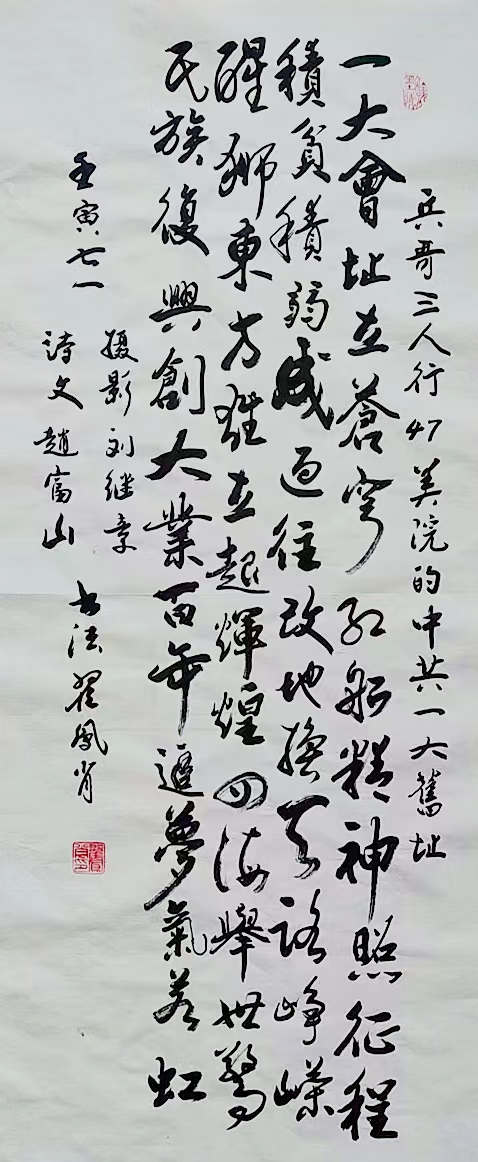 兵哥三人行47美院的中共一大舊址
一大會址立蒼穹紅船精神照征程
積貧積弱成過往改地換天路崢嶸
醒獅東方雄立起輝煌四海舉世驚
民族復興創大業百年逐夢氣若虹
壬寅七一
摄影刘继章
詩文趙富山
书法翟鳳肖